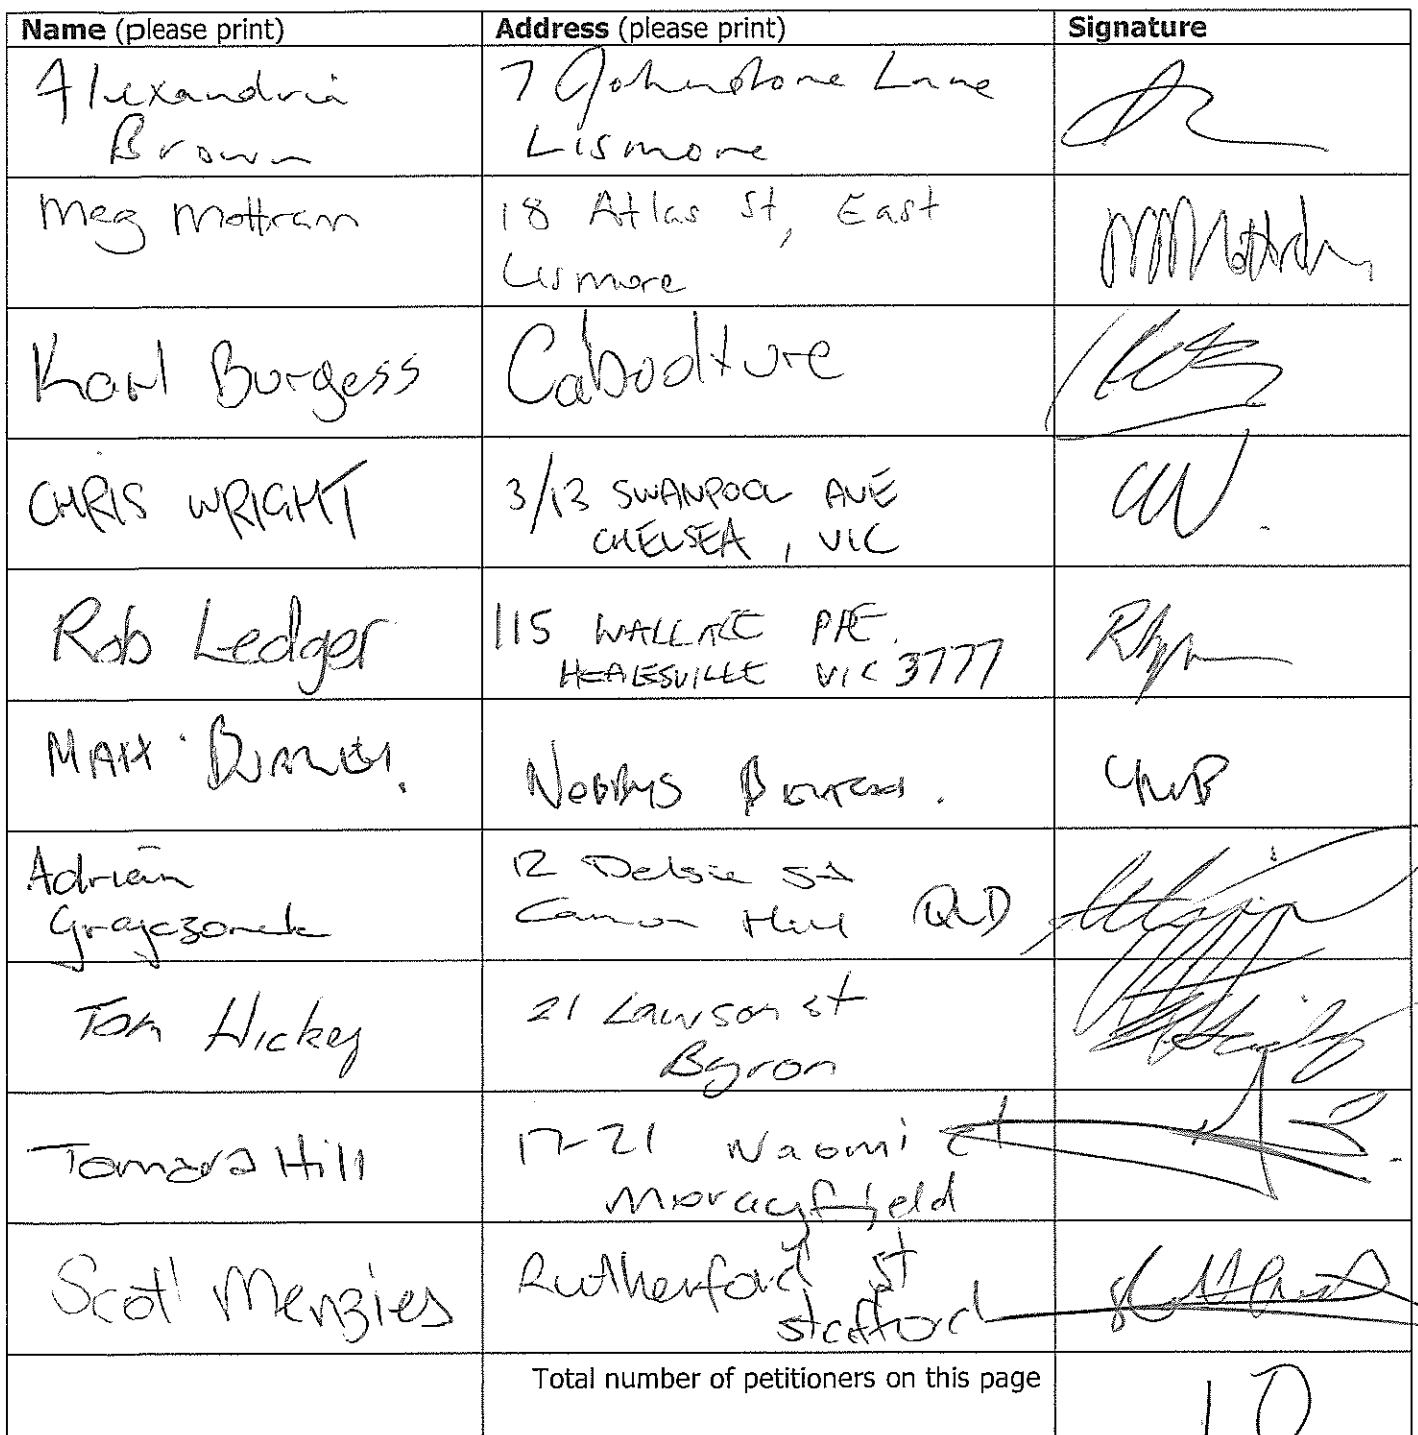 Name (please print) Address (please print) Signature
Alexandria 7 Johnstone Lane
Brown Lismore
Meg Mottram 18 Atlas St, East
Lismore
Karl Burgess Caboolture
CHRIS WRIGHT 3/13 SWANPOOL AVE
CHELSEA, VIC
Rob Ledger 115 WALLACE PDE.
HEALESVILLE VIC 3777
MATT NOBBYS BEACH.
Adrian 12 Delsie St
Grajczonek Cannon Hill QLD
Tom Hickey 21 Lawson st
Byron
Tamara Hill 17-21 Naomi ct
Morayfield
Scott Menzies Rutherford St
Stafford
Total number of petitioners on this page 10